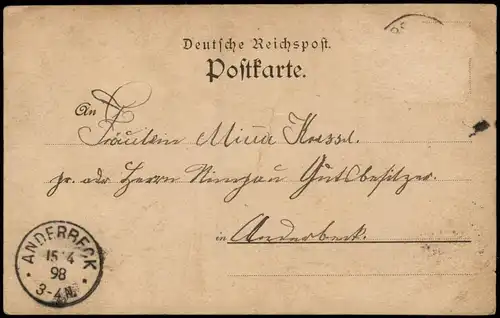 Deutsche Reichspost.
Postkarte.
An
Fräulein Minna Kressel.
pr. adr. Herrn Gutsbesitzer.
in Anderbeck.
ANDERBECK
15 4
98
3-4N.